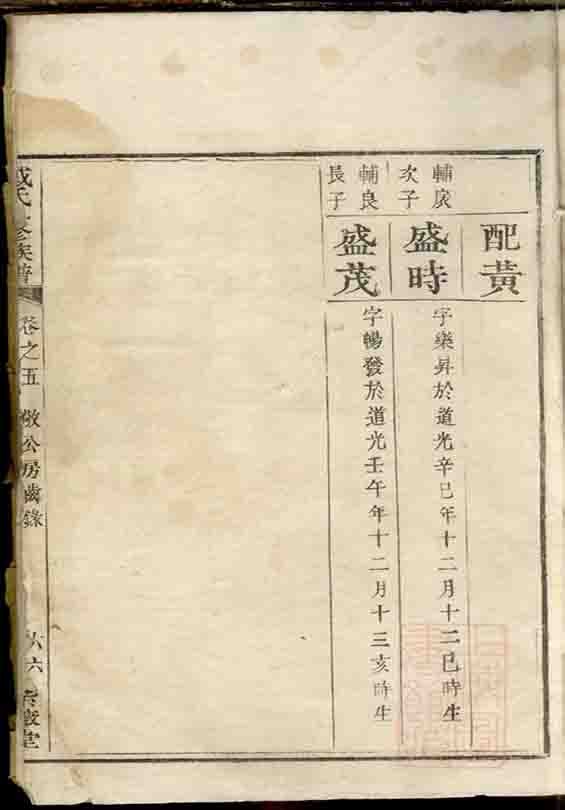 配黃
輔庑
次子
盛時
字樂昇於道光辛巳年十二月十二巳時生
輔良
長子
盛茂
字暢發於道光壬午年十二月十三亥時生
氏 修族譜
卷之五 敬公房齒錄
六六 敦堂